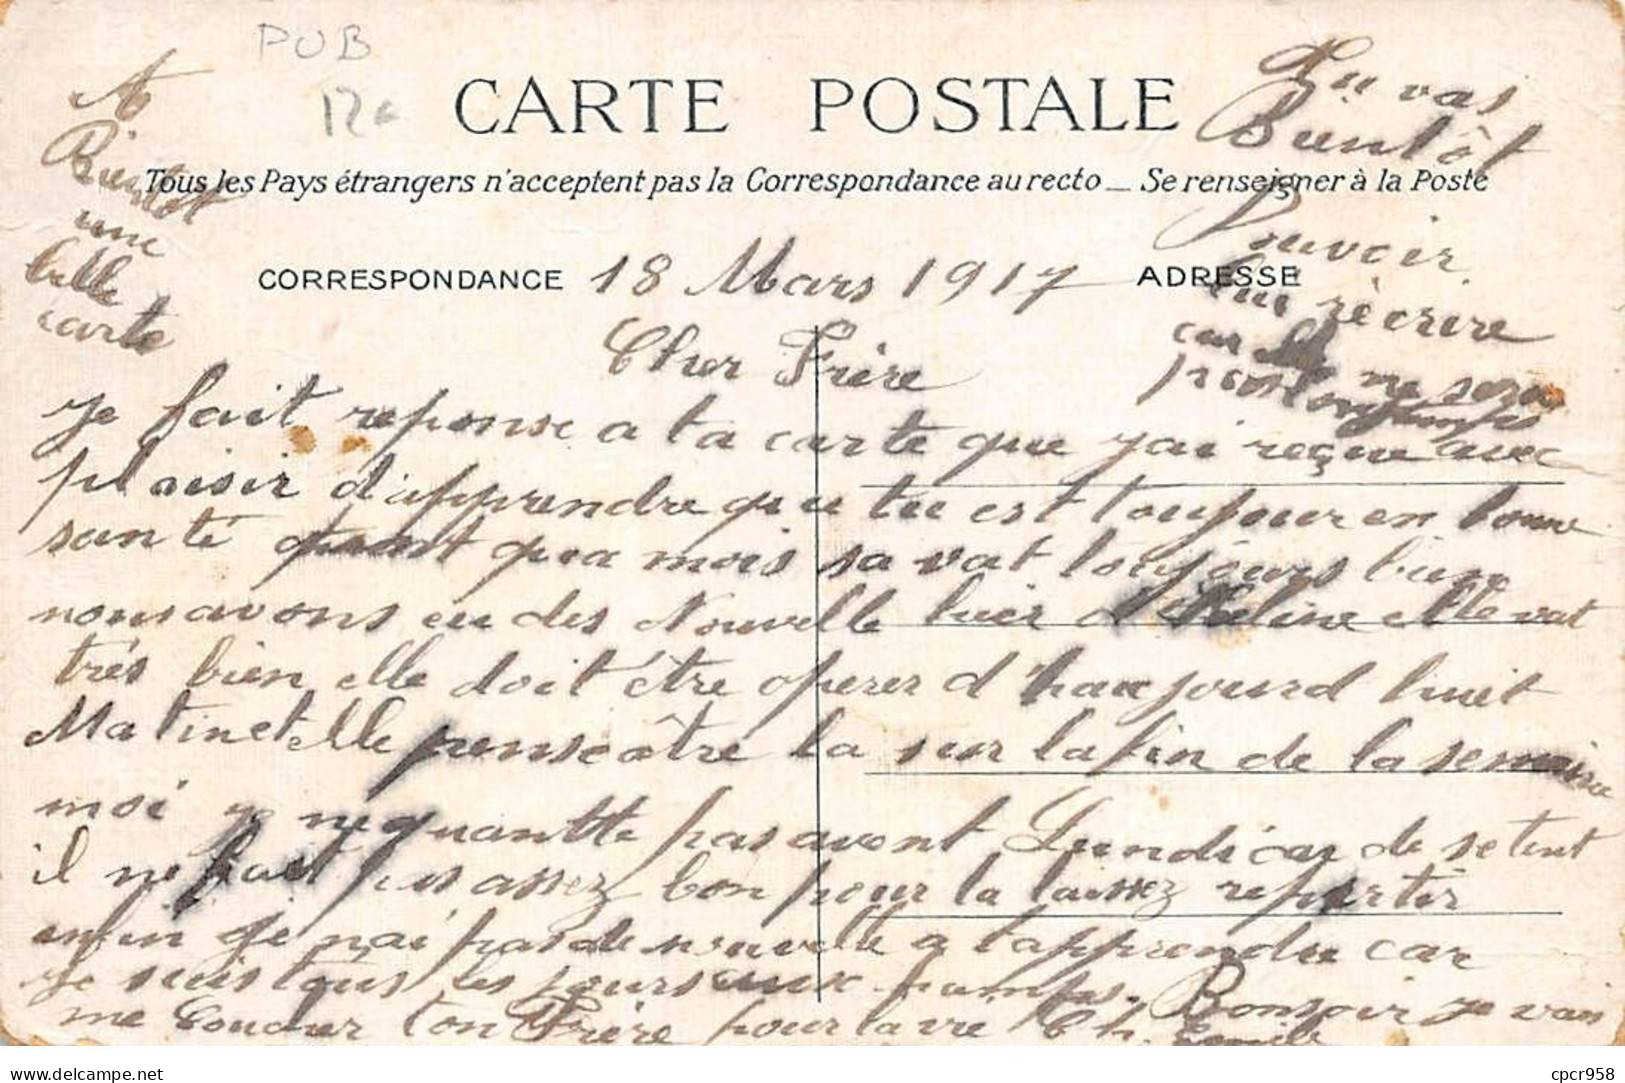 PUB
12€
CARTE POSTALE
Tous les Pays étrangers n'acceptent pas la Correspondance au recto — Se renseigner à la Poste
A
Bientot
une
belle
carte
Tu vas
Bientôt
Pouvoir
lui réecrire
car elle ne sera
pas longtemps
CORRESPONDANCE 18 Mars 1917 ADRESSE
Cher Frère
Je fait reponse a ta carte que j'ai reçue avec
plaisir d'apprendre que tu est toujour en bonne
santé quant qua mois sa vat toujours bien
nous avons eu des Nouvelle hier d'Heline elle vat
très bien elle doit être operer d'haujourd huit
Matin et elle pense être la sur la fin de la semaine
moi je ne quantte pas avant Lundi car de se tent
il ne fait pas assez bon pour la laissez repartir
enfin je n'ai pas de nouvelle a t'apprendre car
Je suis tous les jours aux champs. Bonsoir je vais
me coucher ton Frère pour la vie Ch. Emile
cpcr958